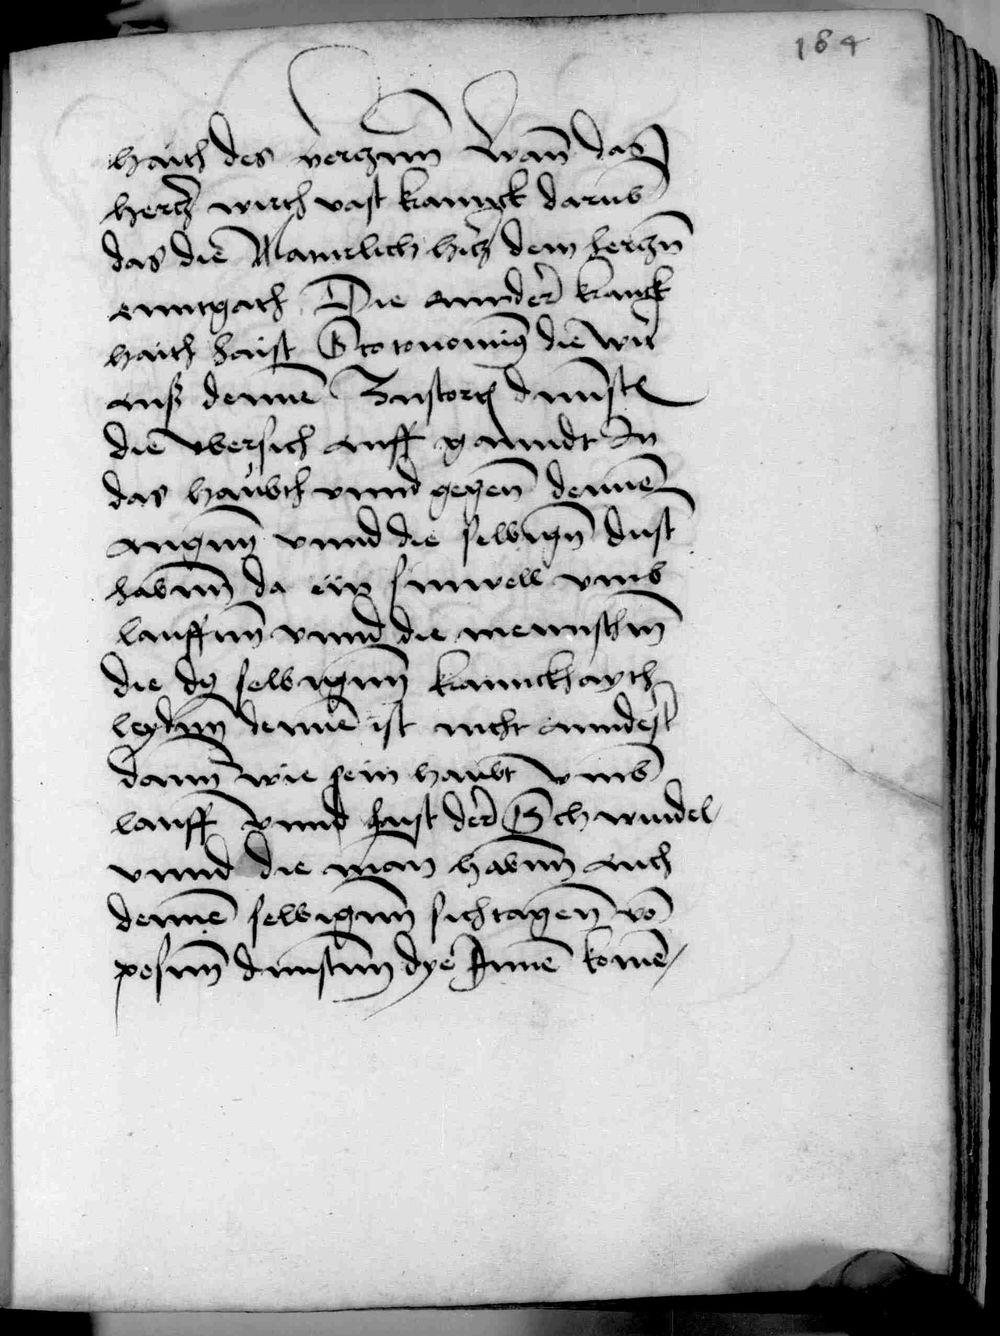 184
haith des herczenn Wann das
hertz wirth vast kranck darub
das die Naturlich hicz dem herczn
enntgath Die annder kranck
haith haist Scotonomia die wir
auß denne Zustorn dunst
die vbersich auff ganndt In
das haubth vnnd gegen denne
augenn vnnd die selbign dust
habenn da ein sinwell vmb
lauffenn vnnd die mennschen
die dy selbigenn kranckhayth
leydenn denne ist nicht annderst
dann wie sein haubt vmb
lauff vnnd haist der Schwindel
vnnd die man habenn auch
denne selbigenn sichtagenn vo
posenn dunstenn dye Inne komē